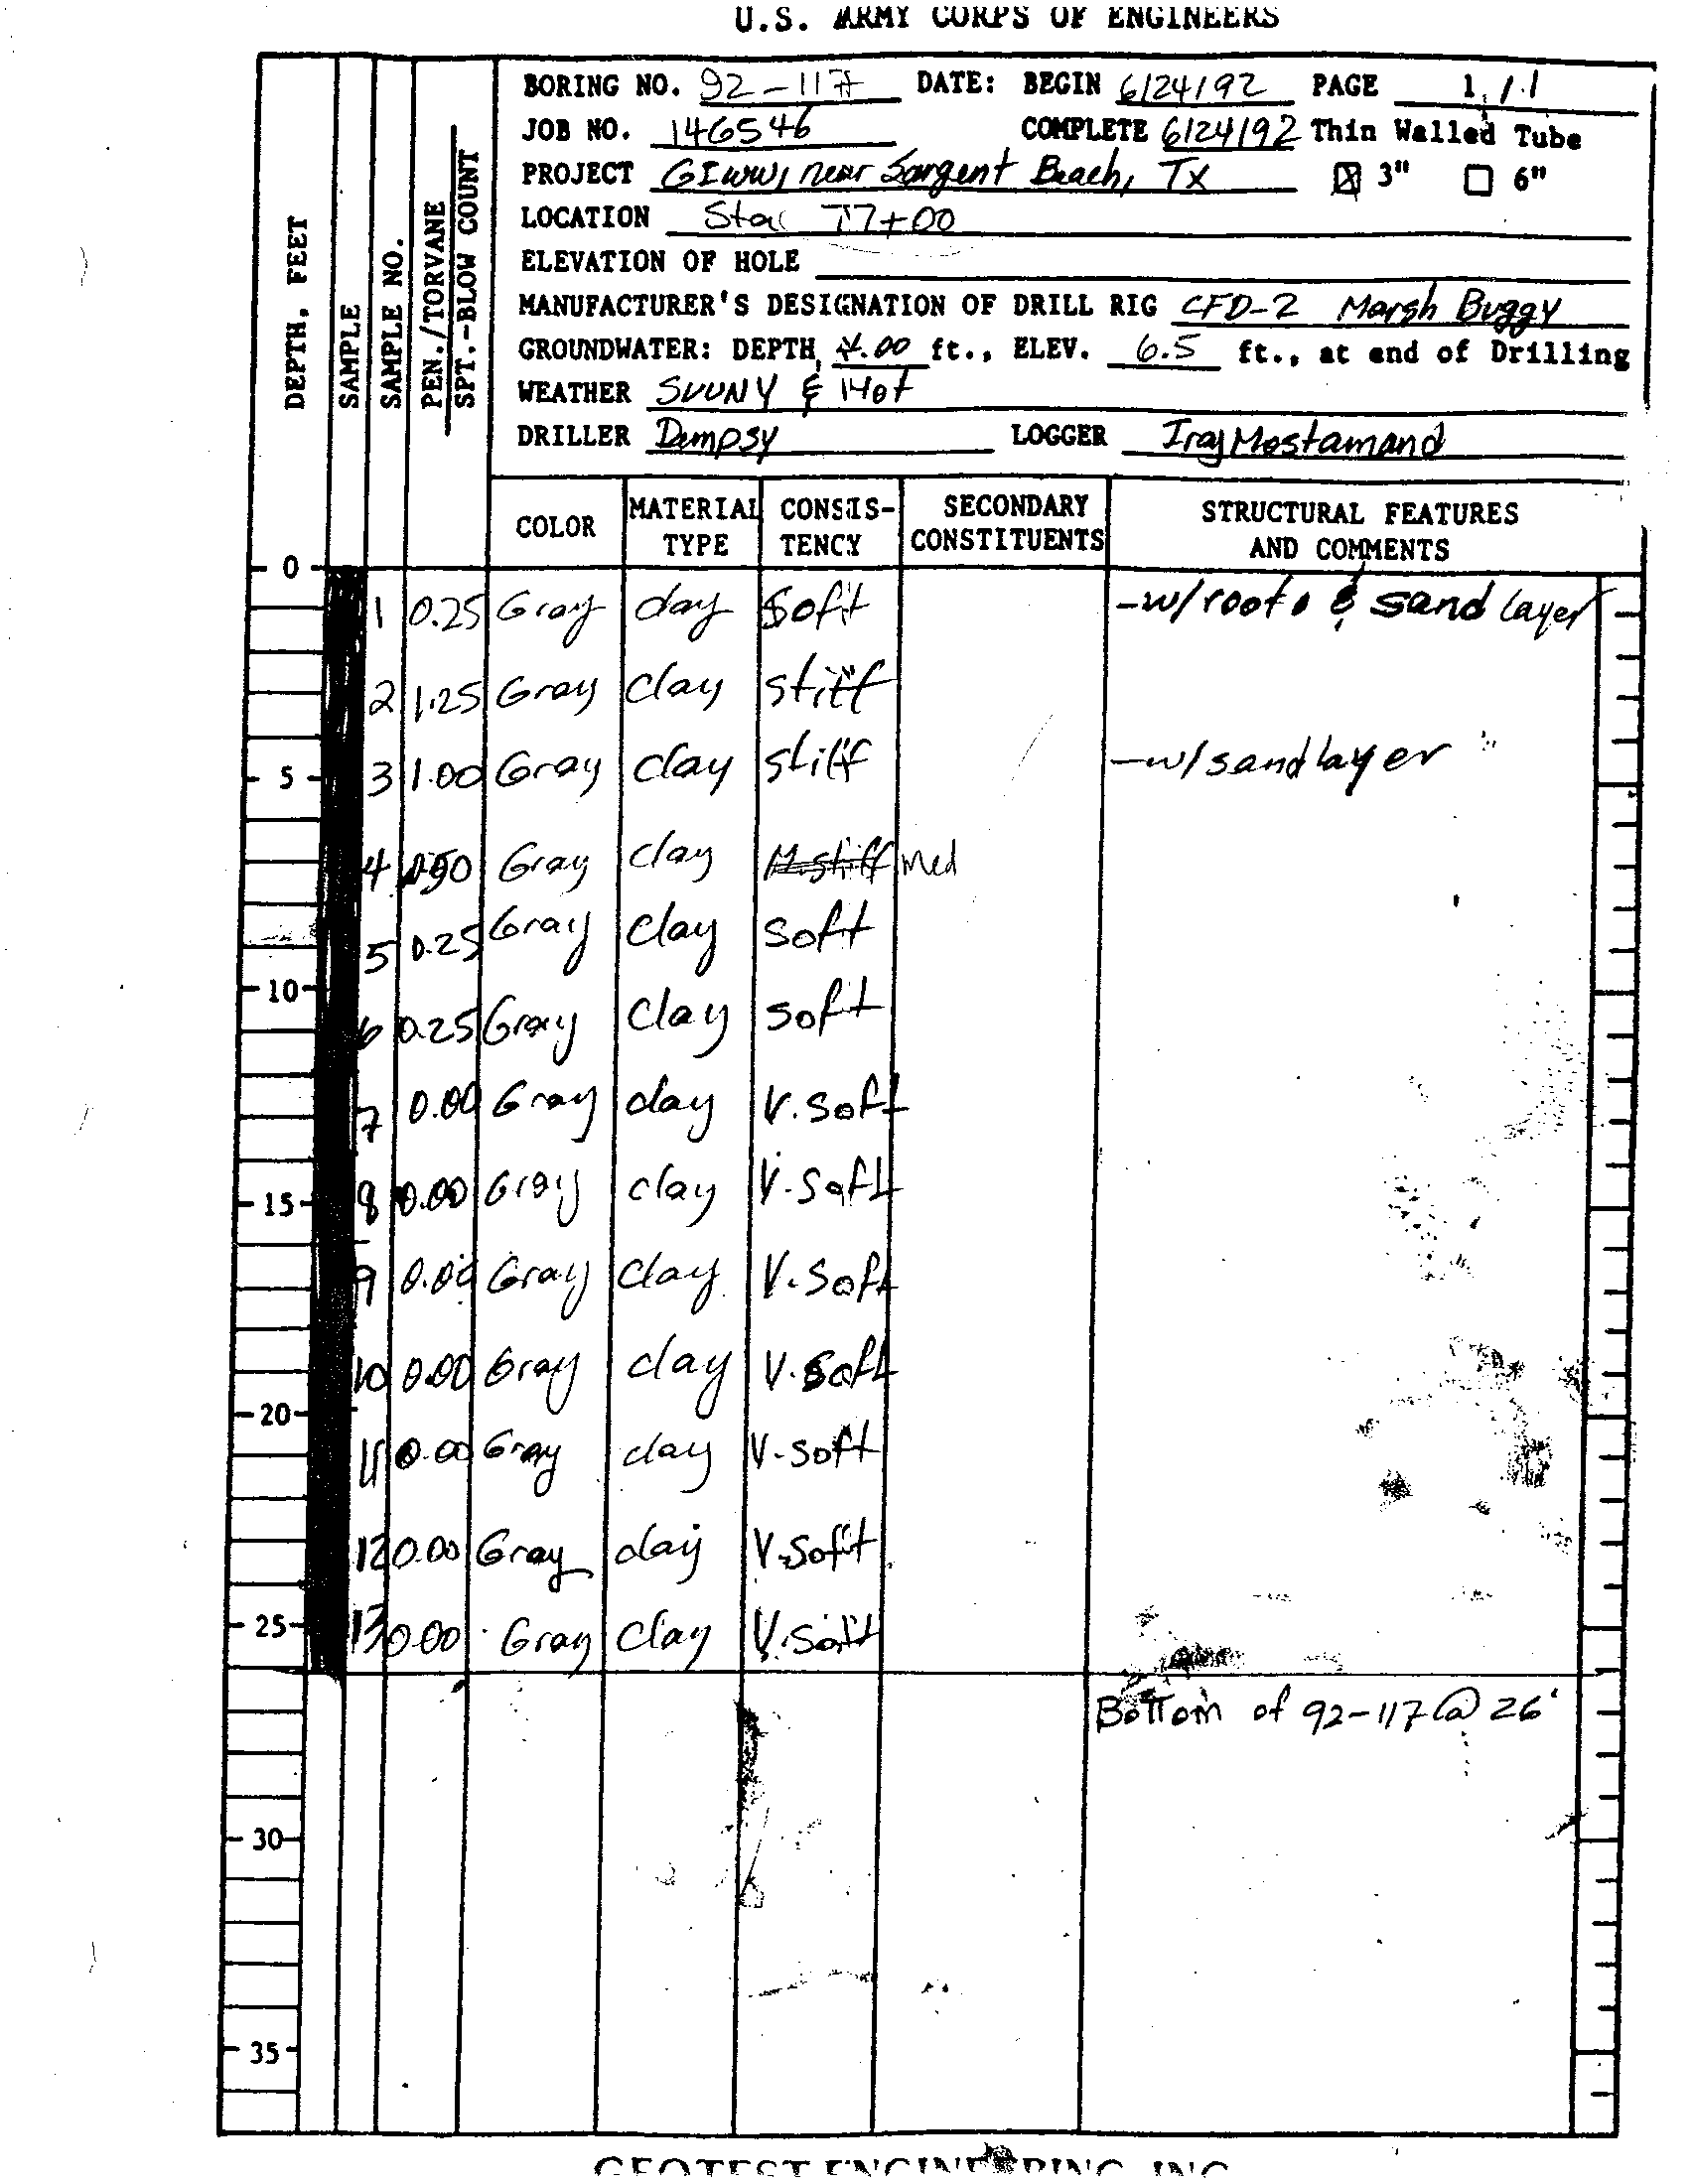 U.S. ARMY CORPS OF ENGINEERS
BORING NO. 92-117 DATE: BEGIN 6/24/92 PAGE 1/1
JOB NO. 146546 COMPLETE 6/24/92 Thin Walled Tube
PROJECT GIWW, near Sargent Beach, TX ☒ 3" ☐ 6"
LOCATION Sta 77+00
ELEVATION OF HOLE
MANUFACTURER'S DESIGNATION OF DRILL RIG CFD-2 Marsh Buggy
GROUNDWATER: DEPTH, 4.00 ft., ELEV. 6.5 ft., at end of Drilling
WEATHER SUUNY & Hot
DRILLER Dempsy LOGGER Iraj Mostamand
DEPTH, FEET
SAMPLE
SAMPLE NO.
PEN./TORVANE
SPT.-BLOW COUNT
COLOR MATERIAL TYPE CONSIS-TENCY SECONDARY CONSTITUENTS STRUCTURAL FEATURES AND COMMENTS
0
1 0.25 Gray clay Soft -w/roots & sand layer
2 1.25 Gray clay stiff
5 3 1.00 Gray clay stiff -w/sand layer
4 0.50 Gray clay M.stiff Med
5 0.25 Gray clay soft
10
6 0.25 Gray clay soft
7 0.00 Gray clay V.soft
15 8 0.00 Gray clay V.soft
9 0.00 Gray clay V.soft
10 0.00 Gray clay V.soft
20
11 0.00 Gray clay V-soft
12 0.00 Gray clay V.soft
25 13 0.00 Gray clay V.soft
Bottom of 92-117 @ 26'
30
35
GEOTEST ENGINEERING, INC.